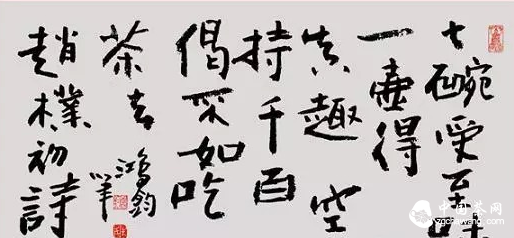 七碗受至味
一壺得
真趣空
持千百
偈不如吃
茶去
鴻鈞
筆
趙樸初詩
中国茶网
zgchawang.com